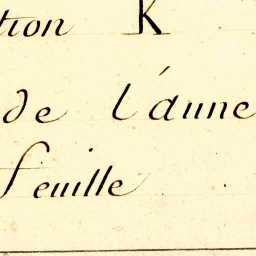 tion K
de L'aune
feuille